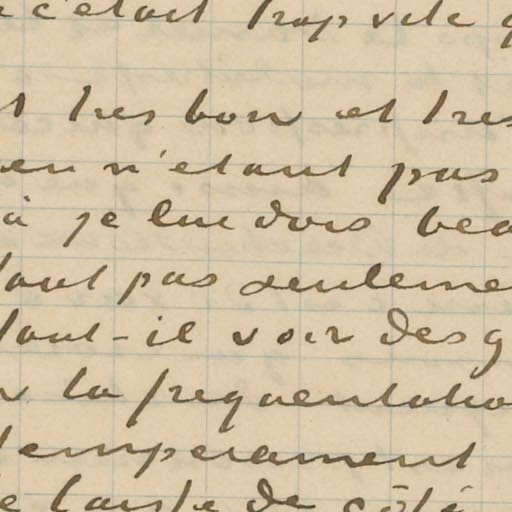 c'etait trop vite
t tres bon et tres
en n'etant pas
à je lui dois bea
faut pas seuleme
faut-il voir des g
la frequentatio
temperament
laisse de côté